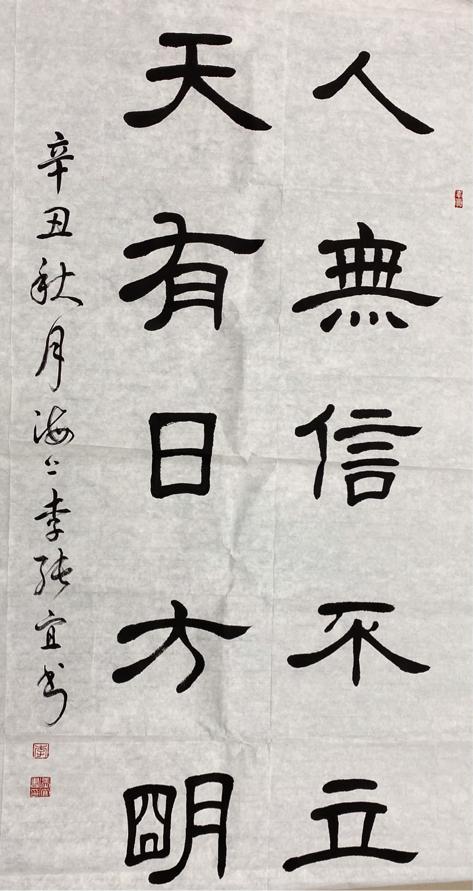 人無信不立
天有日方明
辛丑秋月海上李張宜书